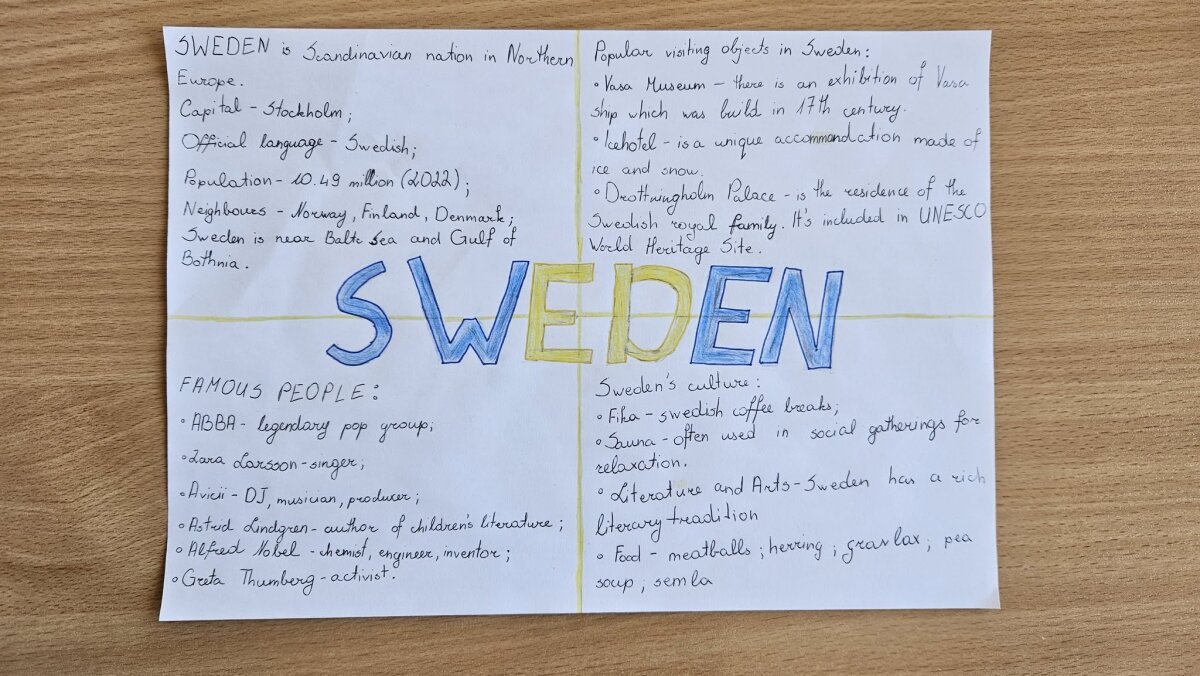 SWEDEN is Scandinavian nation in Northern
Europe.
Capital - Stockholm;
Official language - Swedish;
Population - 10.49 million (2022);
Neighbours - Norway, Finland, Denmark;
Sweden is near Baltc Sea and Gulf of
Bothnia.
Popular visiting objects in Sweden:
• Vasa Museum - there is an exhibition of Vasa
ship which was build in 17th century.
• Icehotel - is a unique accommondcation made of
ice and snow.
• Drottningholm Palace - is the residence of the
Swedish royal family. It's included in UNESCO
World Heritage Site.
SWEDEN
FAMOUS PEOPLE:
• ABBA - legendary pop group;
• Zara Larsson - singer;
• Avicii - DJ, musician, producer;
• Astrid Lindgren - author of children's literature;
• Alfred Nobel - chemist, engineer, inventor;
• Greta Thumberg - activist.
Sweden's culture:
• Fika - swedish coffee breaks;
• Sauna - often used in social gatherings for
relaxation.
• Literature and Arts - Sweden has a rich
literary tradition
• Food - meatballs; herring; gravlax; pea
soup; semla